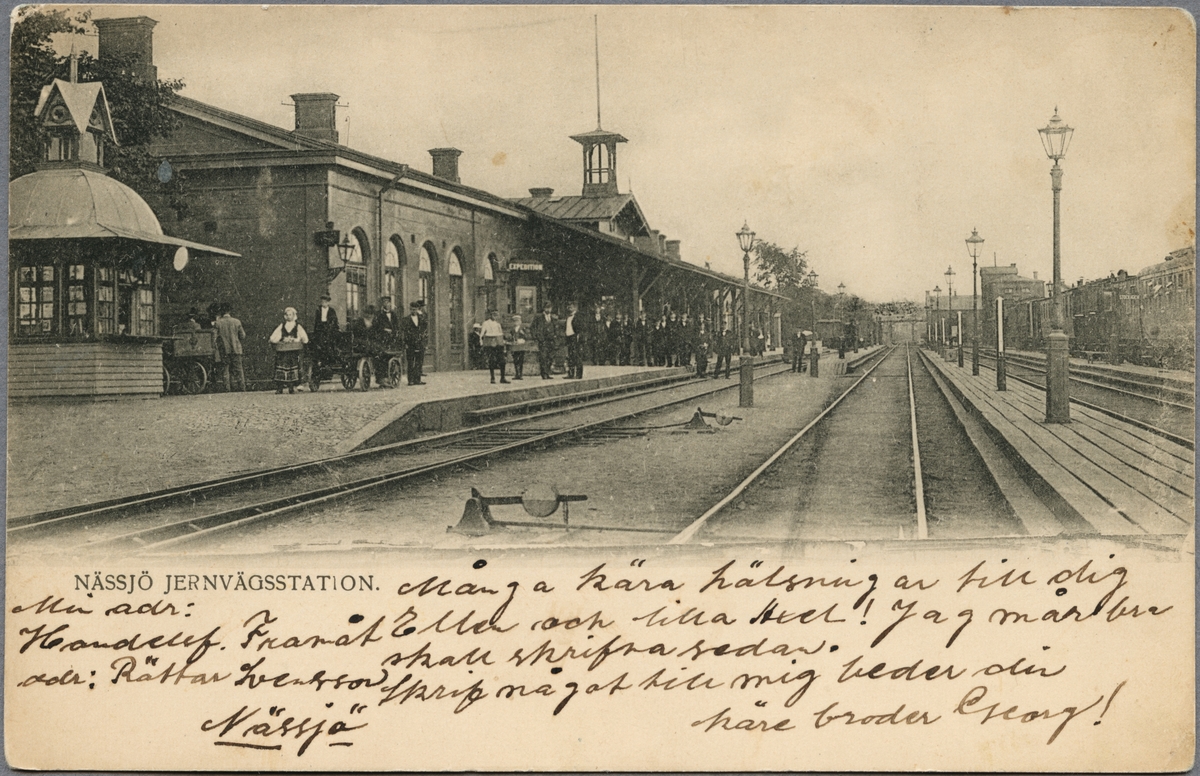 EXPEDITION
NÄSSJÖ JERNVÄGSSTATION.
Många kära hälsningar till dig
Ellen och lilla Axel! Jag mår bra
skall skrifva sedan.
Skrif något till mig beder din
käre broder Georg!
Min adr:
Handelsf. Framåt
adr: Rättar Svensson
Nässjö